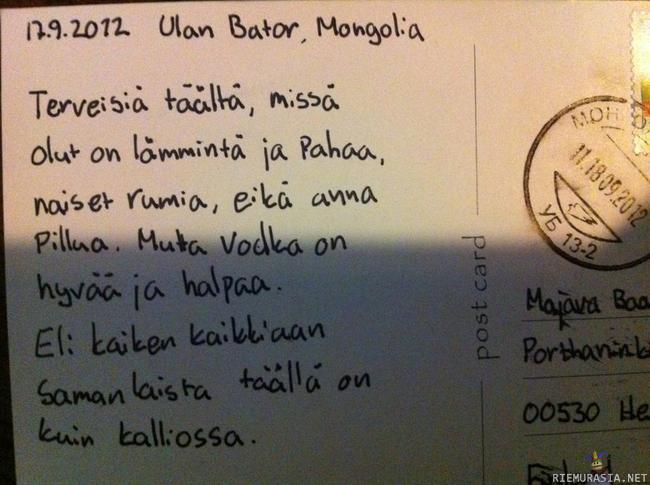 17.9.2012 Ulan Bator, Mongolia
Terveisiä täältä, missä
olut on lämmintä ja Pahaa,
naiset rumia, eikä anna
Pillua. Muta Vodka on
hyvää ja halpaa.
Eli kaiken kaikkiaan
Samanlaista täällä on
kuin kalliossa.
post card
МОН
11.18.09.2012
УБ 13-2
Majava Baa
Porthanink
00530 He
RIEMURASIA.NET